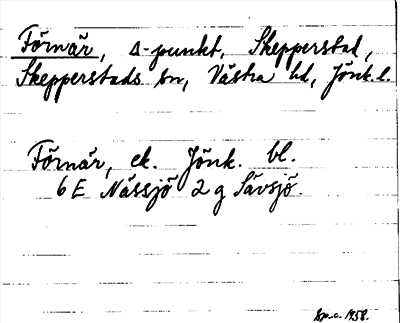 Förnär, Δ-punkt, Skepperstad,
Skepperstads sn, Västra hd, Jönk. l.
Förnär, ek. Jönk. bl.
6 E Nässjö 2 g Sävsjö.
1958.